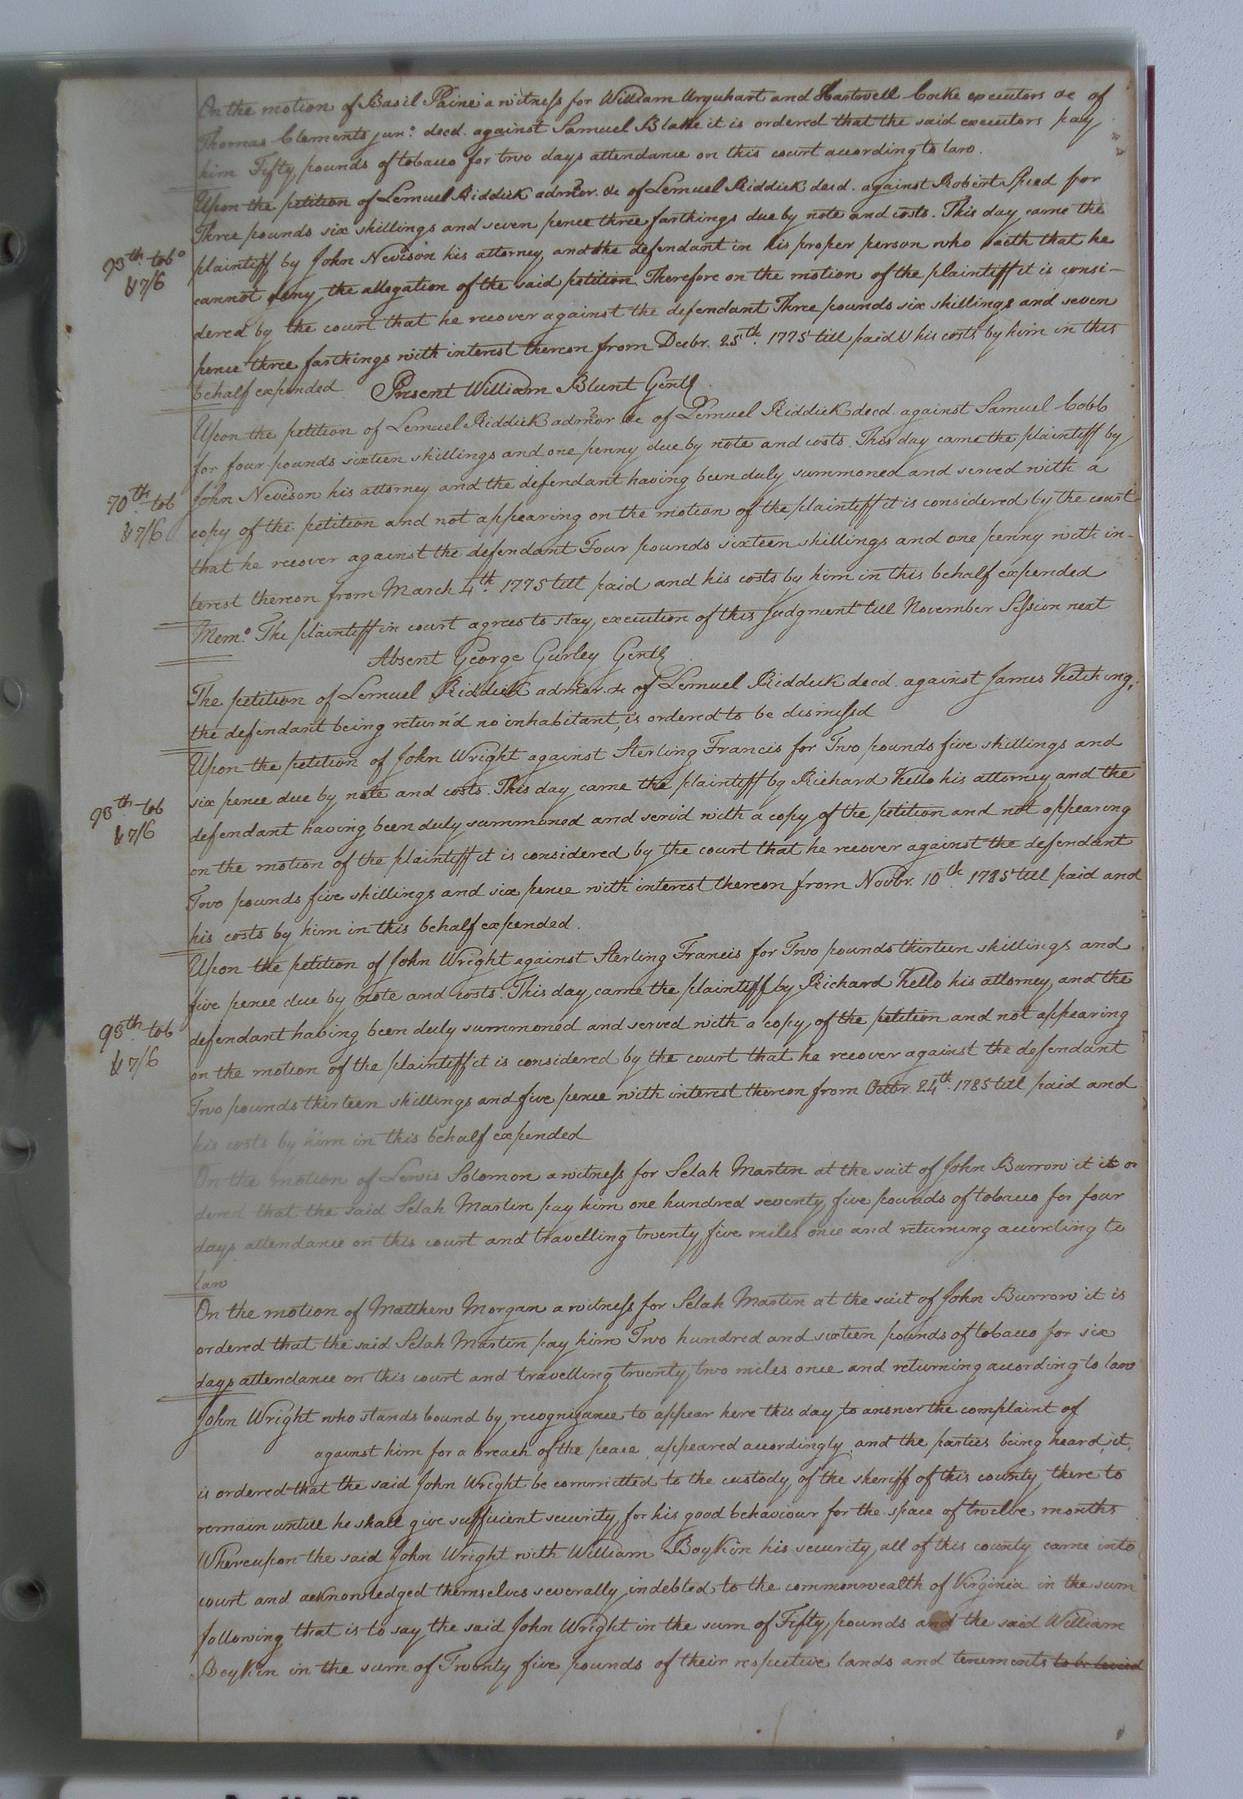 On the motion of Basil Paine a witness for William Urquhart and Hartwell Cocke executors &c of
Thomas Clements junr. decd. against Samuel Blake it is ordered that the said executors pay
him Fifty pounds of tobacco for two days attendance on this court according to law.
Upon the petition of Lemuel Riddick admor. &c of Lemuel Riddick decd. against Robert Speed for
Three pounds six shillings and seven pence three farthings due by note and costs. This day came the
plaintiff by John Nevison his attorney, and the defendant in his proper person who saith that he
cannot deny the allegation of the said petition. Therefore on the motion of the plaintiff it is consi-
dered by the court that he recover against the defendant Three pounds six shillings and seven
pence three farthings with interest thereon from Decbr. 25th. 1775 till paid & his costs by him in this
behalf expended. Present William Blunt Gentl.
93th tobo
& 7/6
Upon the petition of Lemuel Riddick admor &c of Lemuel Riddick decd. against Samuel Cobb
for four pounds sixteen shillings and one penny due by note and costs. This day came the plaintiff by
John Nevison his attorney and the defendant having been duly summoned and served with a
copy of the petition and not appearing on the motion of the plaintiff it is considered by the court
that he recover against the defendant Four pounds sixteen shillings and one penny with in-
terest thereon from March 4th. 1775 till paid and his costs by him in this behalf expended
Memo. The plaintiff in court agrees to stay execution of this Judgment till November Session next
70th tob
& 7/6
Absent George Gurley Gentl.
The petition of Lemuel Riddick admor. &c of Lemuel Riddick decd. against James Kitching,
the defendant being return'd no inhabitant, is ordered to be dismissd
Upon the petition of John Wright against Sterling Francis for Two pounds five shillings and
six pence due by note and costs. This day came the plaintiff by Richard Kello his attorney and the
defendant having been duly summoned and serv'd with a copy of the petition and not appearing
on the motion of the plaintiff it is considered by the court that he recover against the defendant
Two pounds five shillings and six pence with interest thereon from Novbr. 10th. 1785 till paid and
his costs by him in this behalf expended.
98th tob
& 7/6
Upon the petition of John Wright against Sterling Francis for Two pounds thirteen shillings and
five pence due by note and costs. This day came the plaintiff by Richard Kello his attorney and the
defendant having been duly summoned and served with a copy, of the petition and not appearing
on the motion of the plaintiff it is considered by the court that he recover against the defendant
Two pounds thirteen shillings and five pence with interest thereon from Octbr. 24th. 1785 till paid and
his costs by him in this behalf expended
98th tob
& 7/6
On the motion of Lewis Solomon a witness for Selah Martin at the suit of John Burrow it is or
dered that the said Selah Martin pay him one hundred seventy five pounds of tobacco for four
days attendance on this court and travelling twenty five miles once and returning according to
law
On the motion of Matthew Morgan a witness for Selah Martin at the suit of John Burrow it is
ordered that the said Selah Martin pay him Two hundred and sixteen pounds of tobacco for six
days attendance on this court and travelling twenty two miles once and returning according to law
John Wright who stands bound by recognizance to appear here this day to answer the complaint of
against him for a breach of the peace, appeared accordingly, and the parties being heard, it
is ordered that the said John Wright be committed to the custody of the sheriff of this county there to
remain untill he shall give sufficient security, for his good behaviour for the space of twelve months
Whereupon the said John Wright with William Boykin his security all of this county came into
court and acknowledged themselves severally indebted to the commonwealth of Virginia in the sum
following that is to say the said John Wright in the sum of Fifty pounds and the said William
Boykin in the sum of Twenty five pounds of their respective lands and tenements to be levied